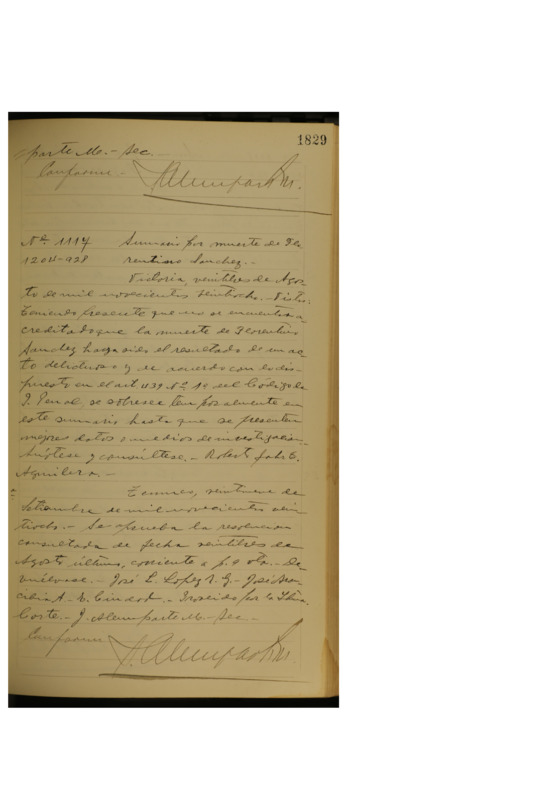 1829
parte M.- Sec.-
Conforme.- J. Alemparte M.
Nº 1117 Sumario por muerte de Flo
1204-928 rentino Sanchez.-
Victoria, veintitres de Agos-
to de mil novecientos veintiocho.- Vistos:
Teniendo presente que no se encuentra a-
creditado que la muerte de Florentino
Sanchez haya sido el resultado de un ac
to delictuoso y de acuerdo con lo dis-
puesto en el art 439 Nº 1º del Codigo de
P. Penal, se sobresee temporalmente en
este sumario hasta que se presenten
mejores datos o medios de investigacion.-
Anótese y consúltese.- Roberto
Aguilera.-
Temuco, veintinueve de
Setiembre de mil novecientos vein
tiocho.- Se aprueba la resolucion
consultada de fecha veintitres de
Agosto último, corriente a f. 9 vta.- De
vuélvase.- José L. Lopez V. G.- José
A.- V. .- Proveido por la Iltma.
Corte.- J. Alemparte M.- Sec.-
Conforme J. Alemparte M.